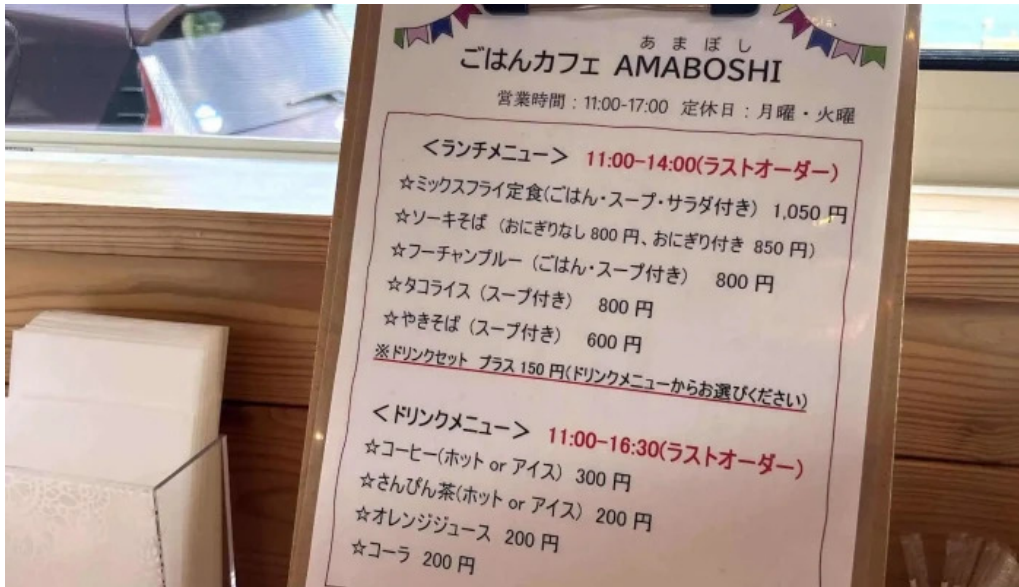 あまぼし
ごはんカフェ AMABOSHI
営業時間：11:00-17:00 定休日：月曜・火曜
＜ランチメニュー＞ 11:00-14:00(ラストオーダー)
☆ミックスフライ定食(ごはん・スープ・サラダ付き) 1,050 円
☆ソーキそば (おにぎりなし 800 円、おにぎり付き 850 円)
☆フーチャンブルー (ごはん・スープ付き) 800 円
☆タコライス (スープ付き) 800 円
☆やきそば (スープ付き) 600 円
※ドリンクセット プラス 150 円(ドリンクメニューからお選びください)
＜ドリンクメニュー＞ 11:00-16:30(ラストオーダー)
☆コーヒー(ホット or アイス) 300 円
☆さんぴん茶(ホット or アイス) 200 円
☆オレンジジュース 200 円
☆コーラ 200 円